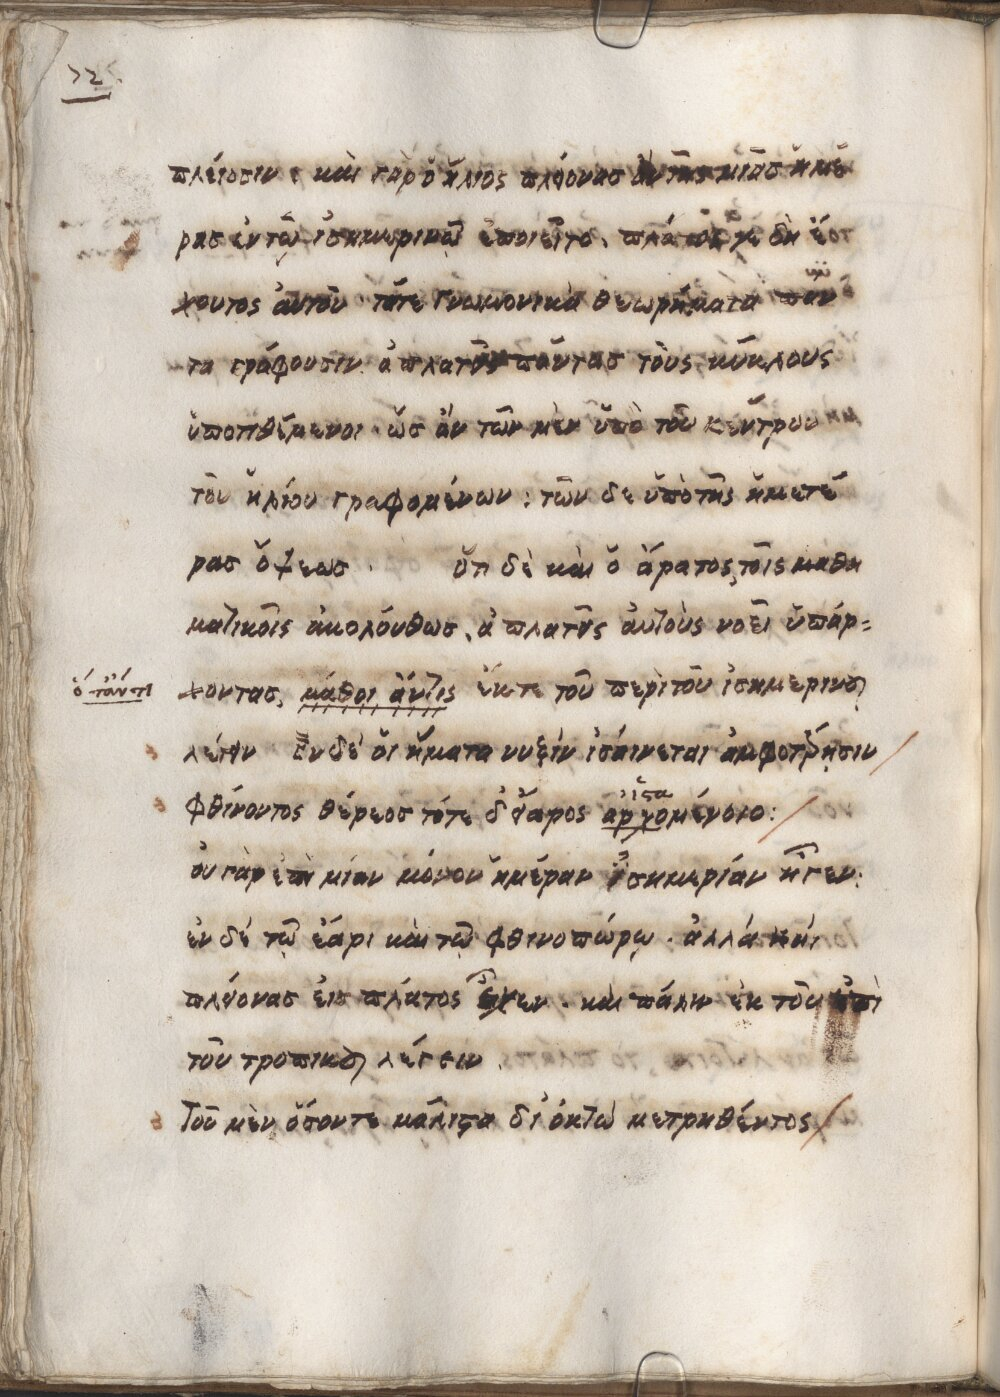 72
πλείοσιν · καὶ γὰρ ὁ ἥλιος πλείονας ἂν τῆς μιᾶς ἡμέ
ρας ἐν τῷ ἰσημερινῷ ἐποιεῖτο. πλάτος γε δὴ
χοντος αὐτοῦ τάτε γνωμονικὰ θεωρήματα παν
τα γράφουσιν ἀπλατεῖς πάντας τοὺς κύκλους
ὑποτιθέμενοι · ὡς ἂν τῶν μὲν ὑπὸ τοῦ κέντρου
τοῦ ἡλίου γραφομένων : τῶν δε ὑπὸ τῆς ἡμετέ
ρας ὄψεως · ὅτι δὲ καὶ ὁ ἄρατος τοῖς μαθη
ματικοῖς ἀκολούθως, ἀπλατεῖς αὐτοὺς νοεῖ ὑπάρ=
ὁ τὰν τι χοντας, μάθοι ἄντις ἔκτε τοῦ περὶ τοῦ ἰσημερινοῦ
λέγειν Ἐν δέ ὁι ἤματα νυξὶν ἰσαίνεται ἀμφοτέρησιν
φθίνοντος θέρεος τότε δ' ἔαρος ἱσταμένοιο :
ὀυ γὰρ ἐπὶ μίαν μόνον ἡμέραν ἰσημερίαν ἦγεν:
ἐν δέ τῷ ἐάρι καὶ τῷ φθινοπώρῳ · ἀλλὰ
πλείονας ἐις πλάτος εἶχεν · καὶ πάλιν ἐκ τοῦ ἐπὶ
τοῦ τροπικοῦ λέγειν .
Τοῦ μὲν ὅσοντε μάλιστα δι' ὀκτὼ μετρηθέντος